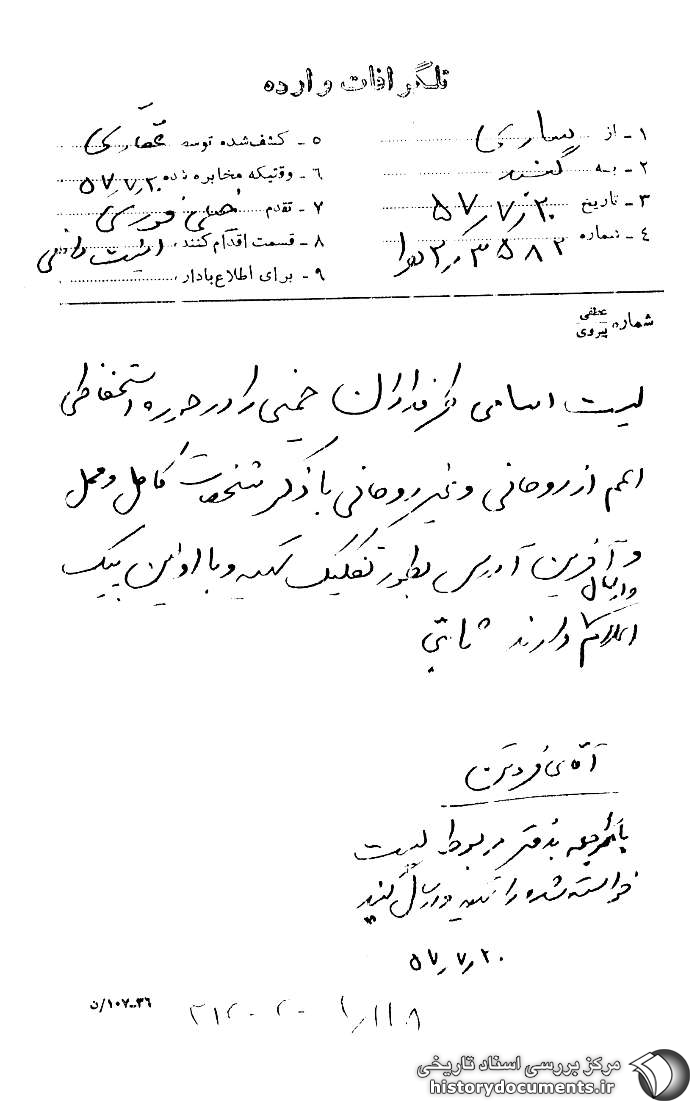 تلگرافات وارده
۱ - از ساری
۲ - به گنبد
۳ - تاریخ ۵۷٫۷٫۲۰
۴ - شماره ۳۵۸۲
۵ - کشف‌شده توسط
۶ - وقتیکه مخابره شده ۵۷٫۷٫۲۰
۷ - تقدم خیلی فوری
۸ - قسمت اقدام کننده، امنیت داخلی
۹ - برای اطلاع بادار،
شماره عطفی پیروی
لیست اسامی طرفداران خمینی را در حوزه استحفاظی
اعم از روحانی و غیر روحانی با ذکر مشخصات کامل و محل
و آخرین آدرس بطور تفکیک تهیه و با اولین پیک
ارسال
اعلام دارند ثابتی
آقای فروتن
با مراجعه بدفتر مربوط لیست
خواسته شده را تهیه و ارسال کنید
۵۷٫۷٫۲۰
۳۶-۱۰۷/ن
مرکز بررسی اسناد تاریخی
historydocuments.ir